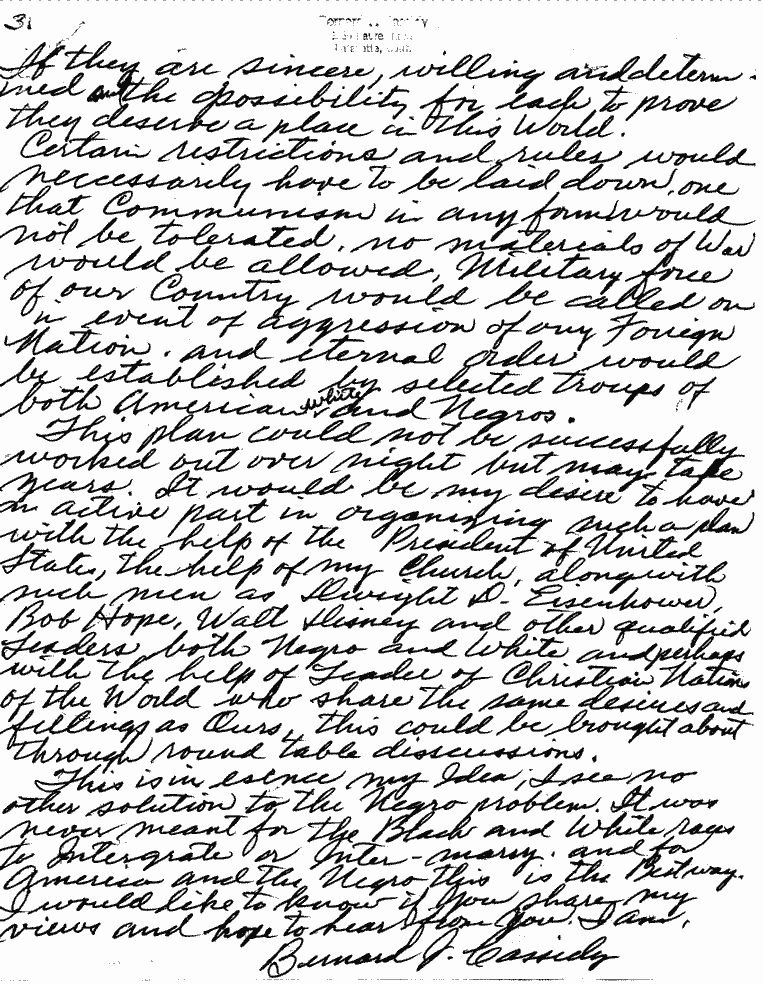 3.
Bernard J. Cassidy
If they are sincere, willing and determ-
ined and the opossibility for each to prove
they deserve a place in this World.
Certain restrictions and rules would
neccessarily have to be laid down, one
that Communism in any form would
not be tolerated, no materials of War
would be allowed, Military force
of our Country would be called on
in event of aggression of any Foriegn
Nation. and eternal order would
be established by selected troups of
both American white and Negros.
This plan could not be successfully
worked out over night but may take
years. It would be my desire to have
an active part in organizing such a plan
with the help of the President of United
States, the help of my Church, along with
such men as Dwight D. Eisenhower,
Bob Hope, Walt Disney and other qualified
Leaders both Negro and White and perhaps
with the help of Leader of Christian Nations
of the World who share the same desires and
fellings as Ours, this could be brought about
through round table disscussions.
This is in esence my Idea, I see no
other solution to the Negro problem. It was
never meant for the Black and White races
to Intergrate or Inter-marry. and for
America and the Negro this is the Best way.
I would like to know if you share my
views and hope to hear from you. I am,
Bernard J. Cassidy